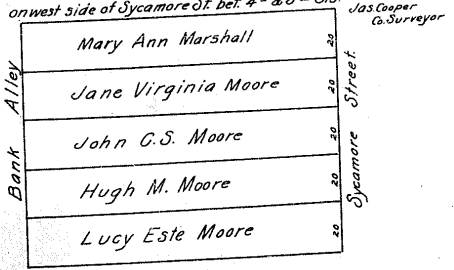 on west side of Sycamore St. bet. 4th & 5th
Jas. Cooper
Co. Surveyor
Mary Ann Marshall 20
Jane Virginia Moore 20
John C.S. Moore 20
Hugh M. Moore 20
Lucy Este Moore 20
Bank Alley
Sycamore Street.